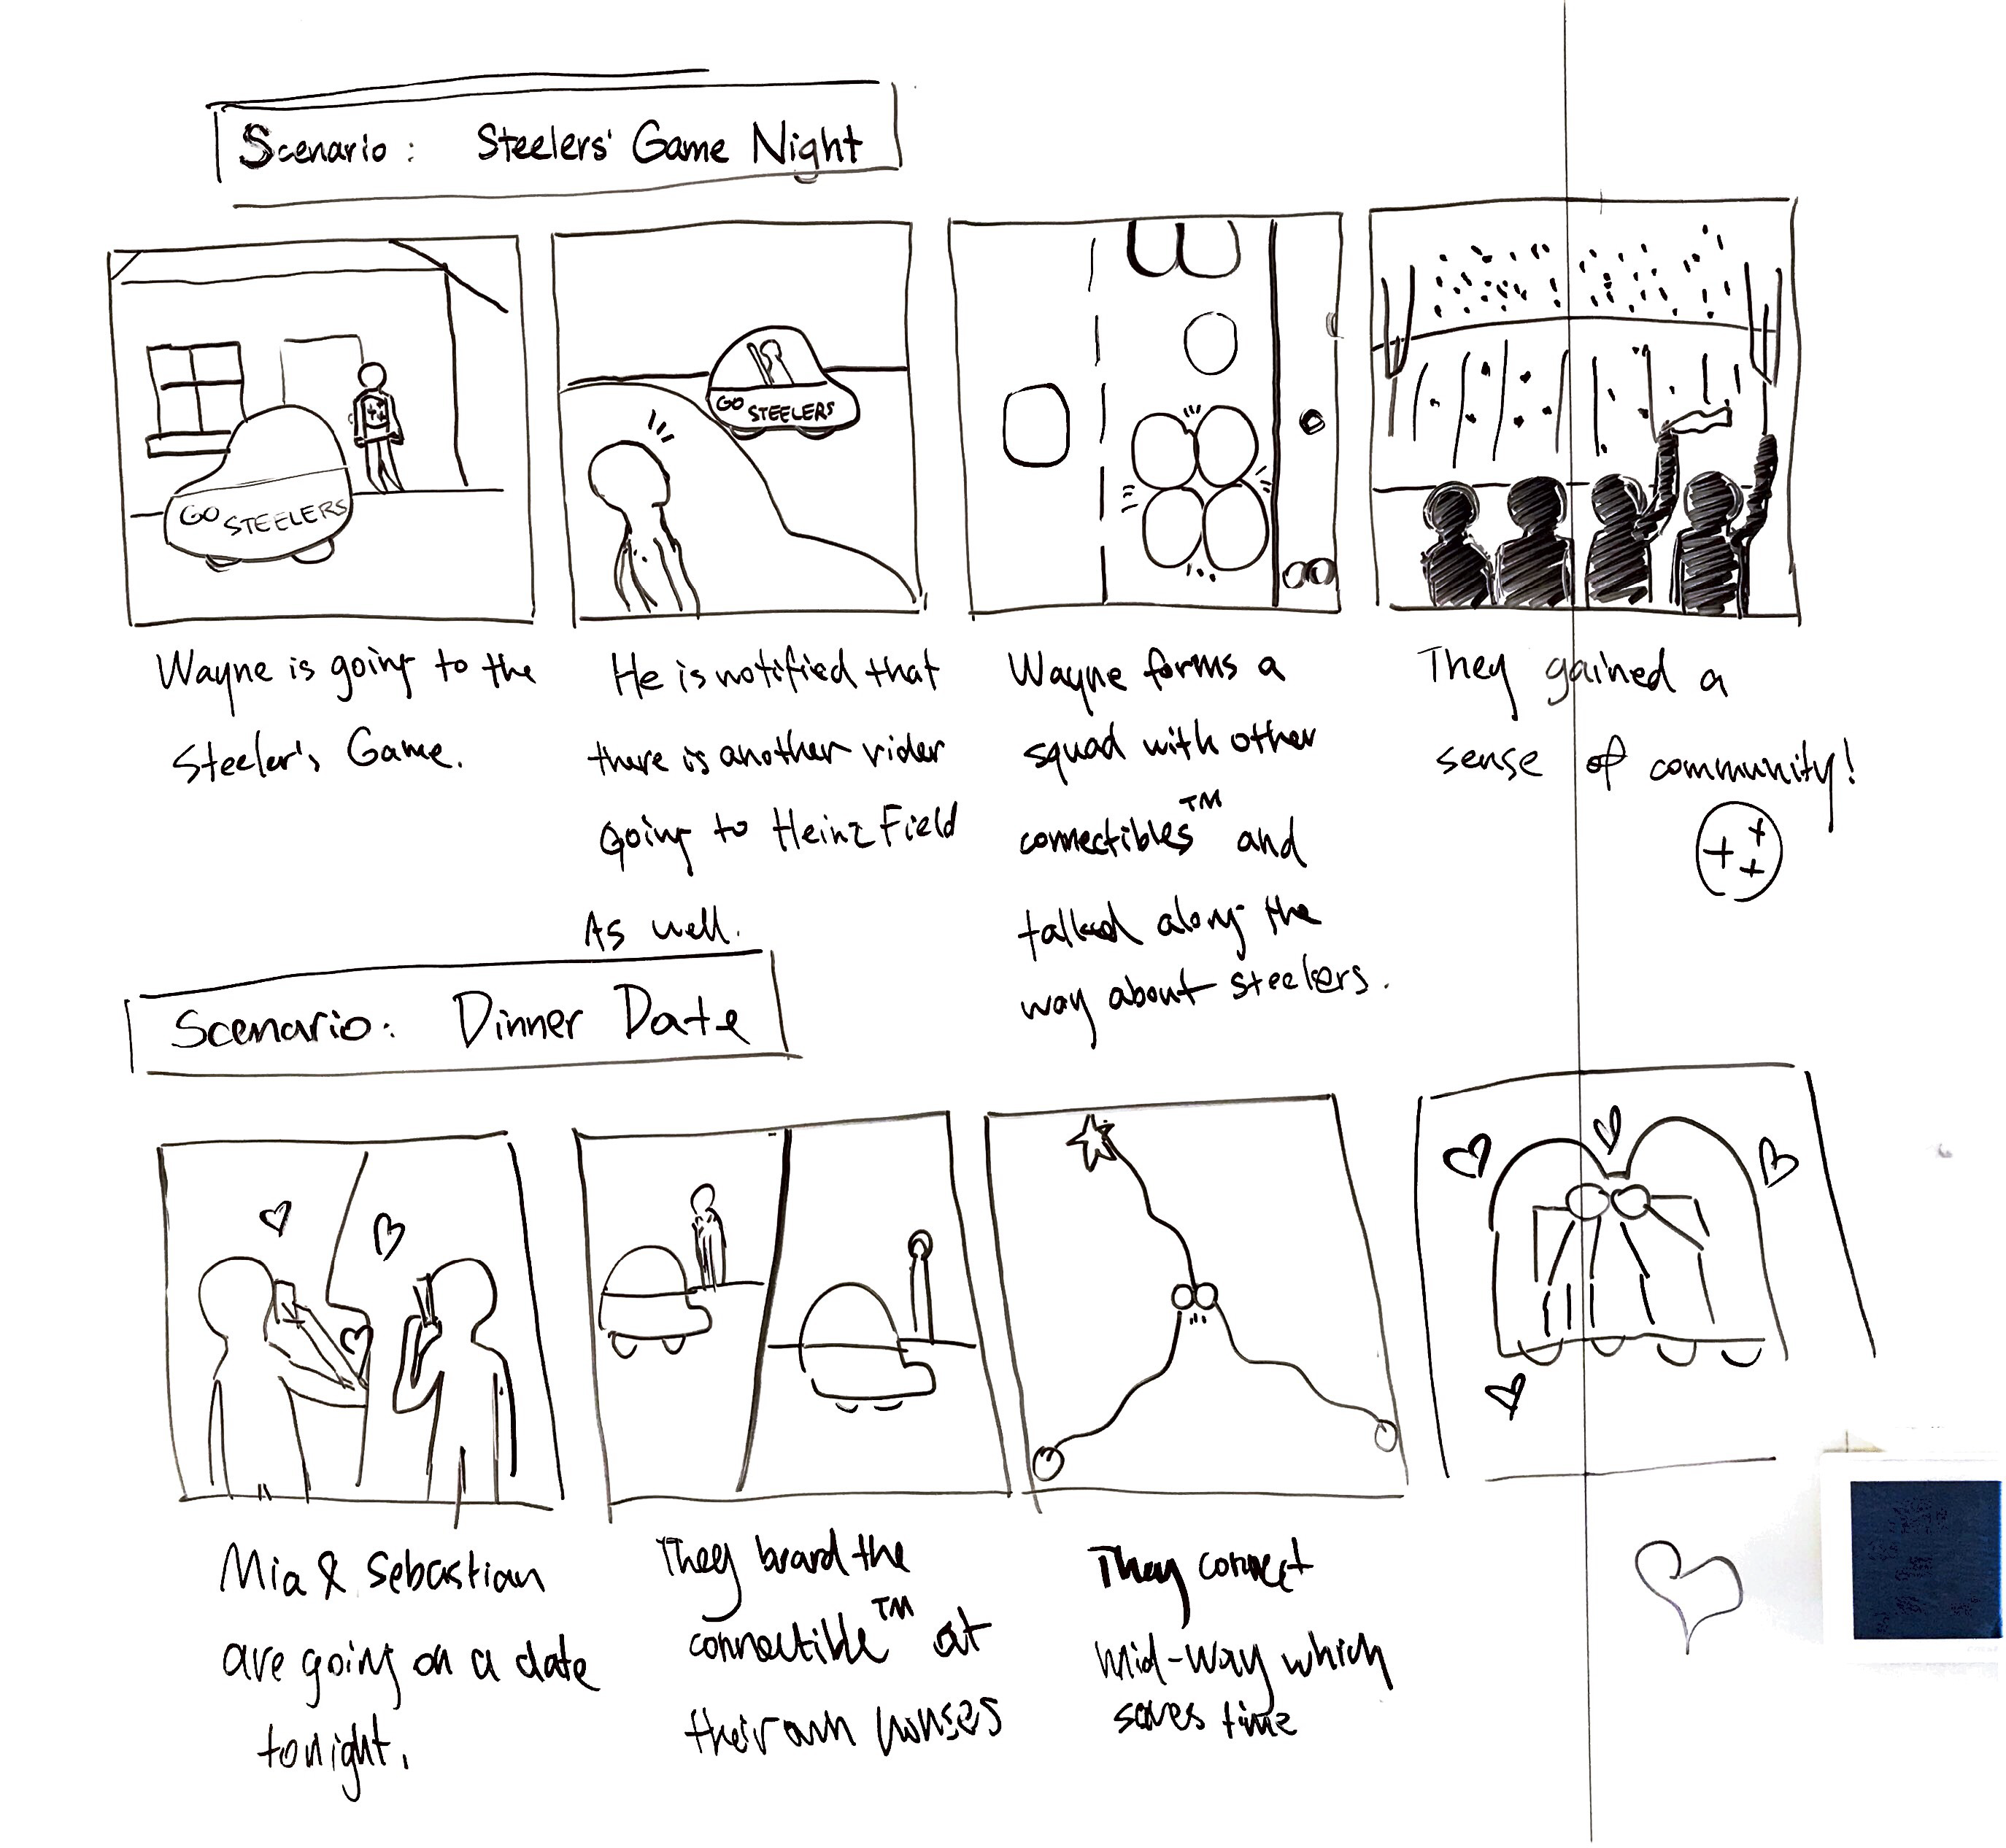 Scenario: Steelers' Game Night
GO STEELERS
GO STEELERS
Wayne is going to the
Steeler's Game.
He is notified that
there is another rider
Going to Heinz Field
As well.
Wayne forms a
squad with other
connectibles™ and
talked along the
way about steelers.
They gained a
sense of community!
Scenario: Dinner Date
Mia & Sebastian
are going on a date
tonight.
They board the
connectible™ at
their own houses
They connect
mid-way which
saves time